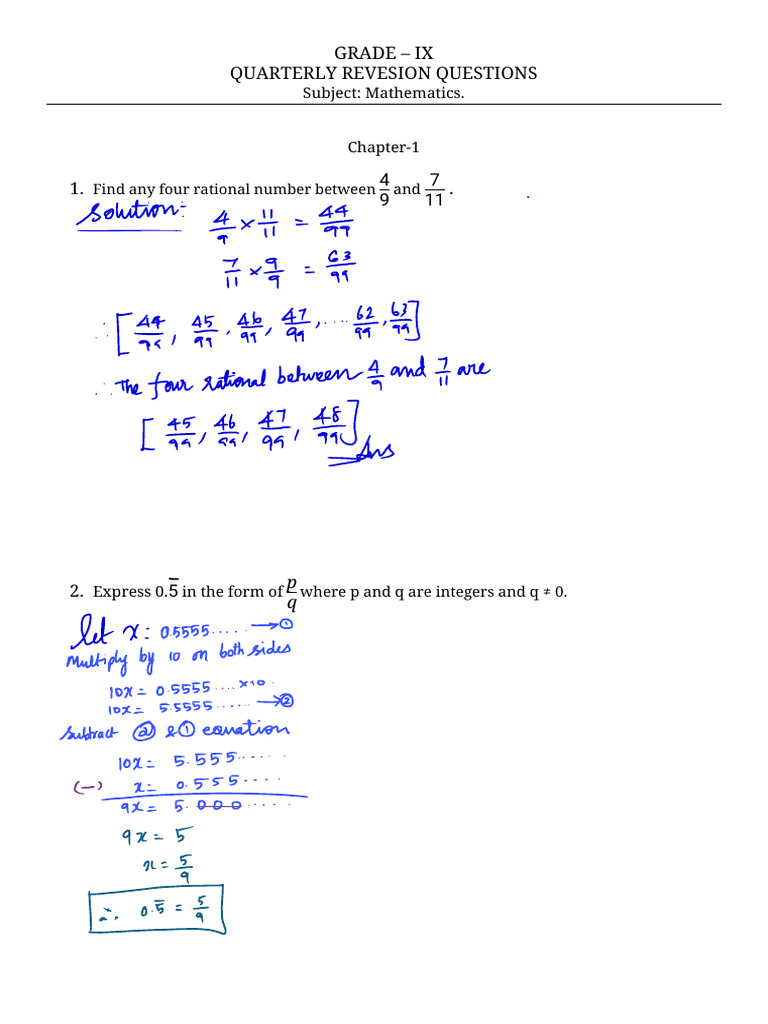 GRADE – IX
QUARTERLY REVESION QUESTIONS
Subject: Mathematics.
Chapter-1
1. Find any four rational number between 4/9 and 7/11 .
Solution:-
4/9 × 11/11 = 44/99
7/11 × 9/9 = 63/99
∴ [44/99, 45/99, 46/99, 47/99, .... 62/99, 63/99]
∴ The four rational between 4/9 and 7/11 are
[45/99, 46/99, 47/99, 48/99]
Ans
2. Express 0.5̅ in the form of p/q where p and q are integers and q ≠ 0.
let x = 0.5555..... → ①
Multiply by 10 on both sides
10x = 0.5555.... ×10..
10x = 5.5555...... → ②
Subtract ② & ① equation
10x = 5.555......
(−) x = 0.555.....
9x = 5.000.....
9x = 5
x = 5/9
∴ 0.5̅ = 5/9